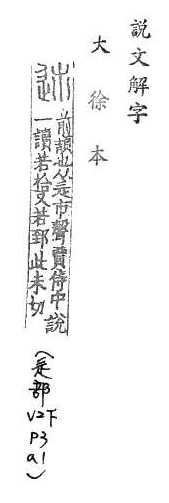 說文解字
大徐本
前頡也从辵市聲賈侍中說
一讀若拾又若郅北末切
(辵部
V2下
P3
a1)